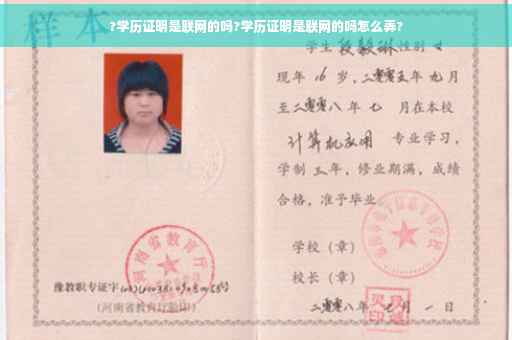 ?学历证明是联网的吗?学历证明是联网的吗怎么弄?
样本
学生 段 性别 女
现年 16 岁，二零零五年 九 月
至二零零八年 七 月在本校
计算机应用 专业学习，
学制 三 年，修业期满，成绩
合格，准予毕业
学校（章）
校长（章）
二零零八年 月 一 日
河南省教育厅
豫教职专证字
（河南省教育厅验印）